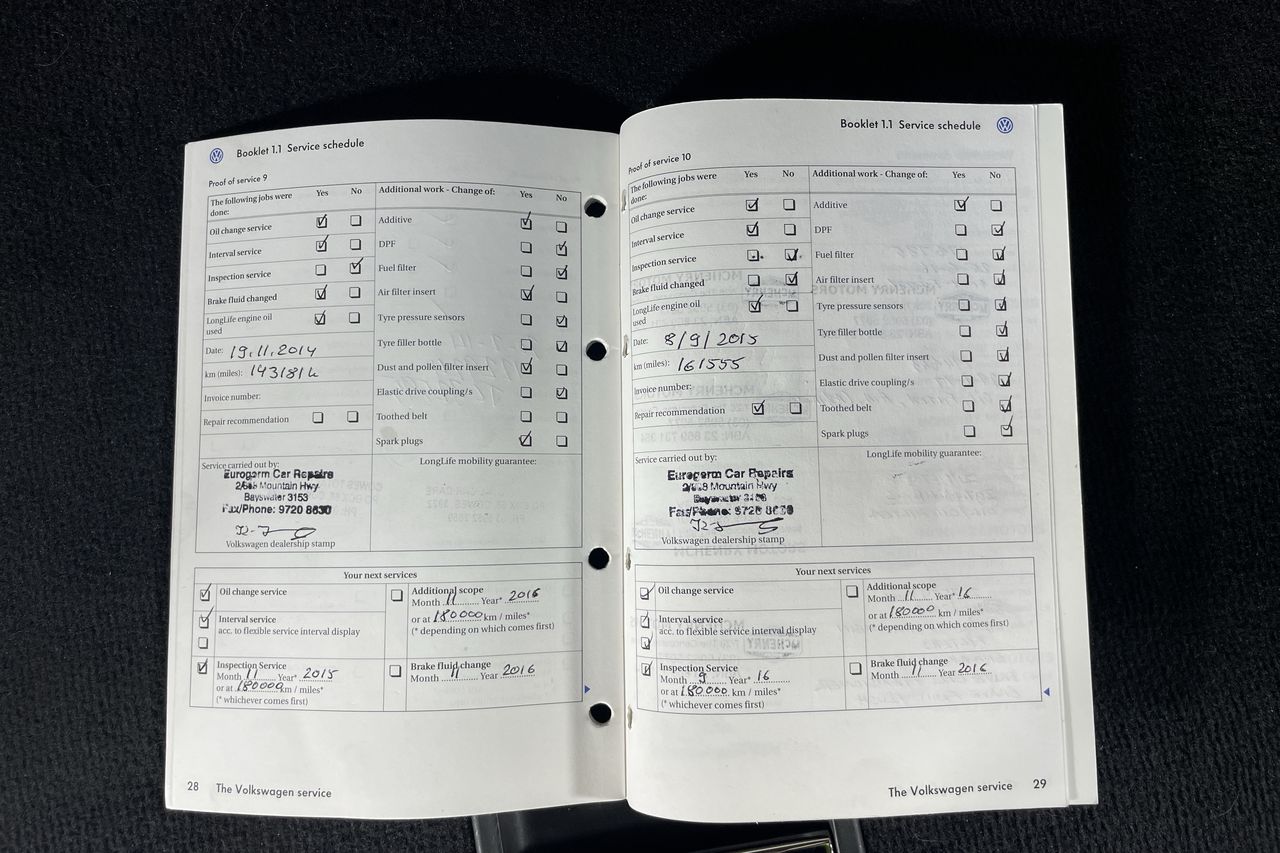 Booklet 1.1 Service schedule
Proof of service 9
The following jobs were done:
Yes No
Additional work - Change of:
Yes No
Oil change service
Interval service
Inspection service
Brake fluid changed
LongLife engine oil used
Date: 19.11.2014
km (miles):
Invoice number:
Repair recommendation
Additive
DPF
Fuel filter
Air filter insert
Tyre pressure sensors
Tyre filler bottle
Dust and pollen filter insert
Elastic drive coupling/s
Toothed belt
Spark plugs
Service carried out by:
Eurogerm Car Repairs
Mountain Hwy
Bayswater 3153
Fax/Phone: 9720 8630
Volkswagen dealership stamp
LongLife mobility guarantee:
Your next services
Oil change service
Interval service
acc. to flexible service interval display
Inspection Service
Month 11 Year* 2015
or at 180000 km / miles*
(* whichever comes first)
Additional scope
Month 11 Year* 2016
or at 180000 km / miles*
(* depending on which comes first)
Brake fluid change
Month 11 Year 2016
28 The Volkswagen service
Booklet 1.1 Service schedule
Proof of service 10
The following jobs were done:
Yes No
Additional work - Change of:
Yes No
Oil change service
Interval service
Inspection service
Brake fluid changed
LongLife engine oil used
Date: 8/9/2015
km (miles): 161555
Invoice number:
Repair recommendation
Additive
DPF
Fuel filter
Air filter insert
Tyre pressure sensors
Tyre filler bottle
Dust and pollen filter insert
Elastic drive coupling/s
Toothed belt
Spark plugs
Service carried out by:
Eurogerm Car Repairs
Mountain Hwy
Fax/Phone: 9720 8630
Volkswagen dealership stamp
LongLife mobility guarantee:
Your next services
Oil change service
Interval service
acc. to flexible service interval display
Inspection Service
Month 9 Year* 16
or at 180000 km / miles*
(* whichever comes first)
Additional scope
Month 11 Year* 16
or at 180000 km / miles*
(* depending on which comes first)
Brake fluid change
Month 11 Year 2016
The Volkswagen service 29